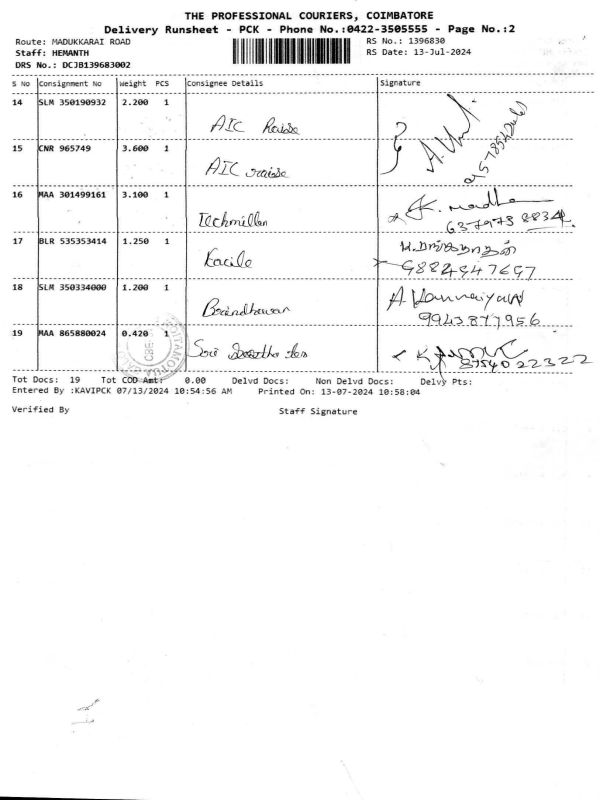 THE PROFESSIONAL COURIERS, COIMBATORE
Delivery Runsheet - PCK - Phone No.:0422-3505555 - Page No.:2
Route: MADUKKARAI ROAD RS No.: 1396830
Staff: HEMANTH RS Date: 13-Jul-2024
DRS No.: DCJB139683002
S No Consignment No Weight PCS Consignee Details Signature
14 SLM 350190932 2.200 1 AIC Raise
15 CNR 965749 3.600 1 AIC raise
16 MAA 301499161 3.100 1 Techmillen
6379738834
17 BLR 535353414 1.250 1 Kacile
9884947697
18 SLM 350334000 1.200 1 Brindhavan A. Kannaiyan
9943877956
19 MAA 865880024 0.420 1 Sri
8754022322
Tot Docs: 19 Tot COD Amt: 0.00 Delvd Docs: Non Delvd Docs: Delvy Pts:
Entered By :KAVIPCK 07/13/2024 10:54:56 AM Printed On: 13-07-2024 10:58:04
Verified By Staff Signature